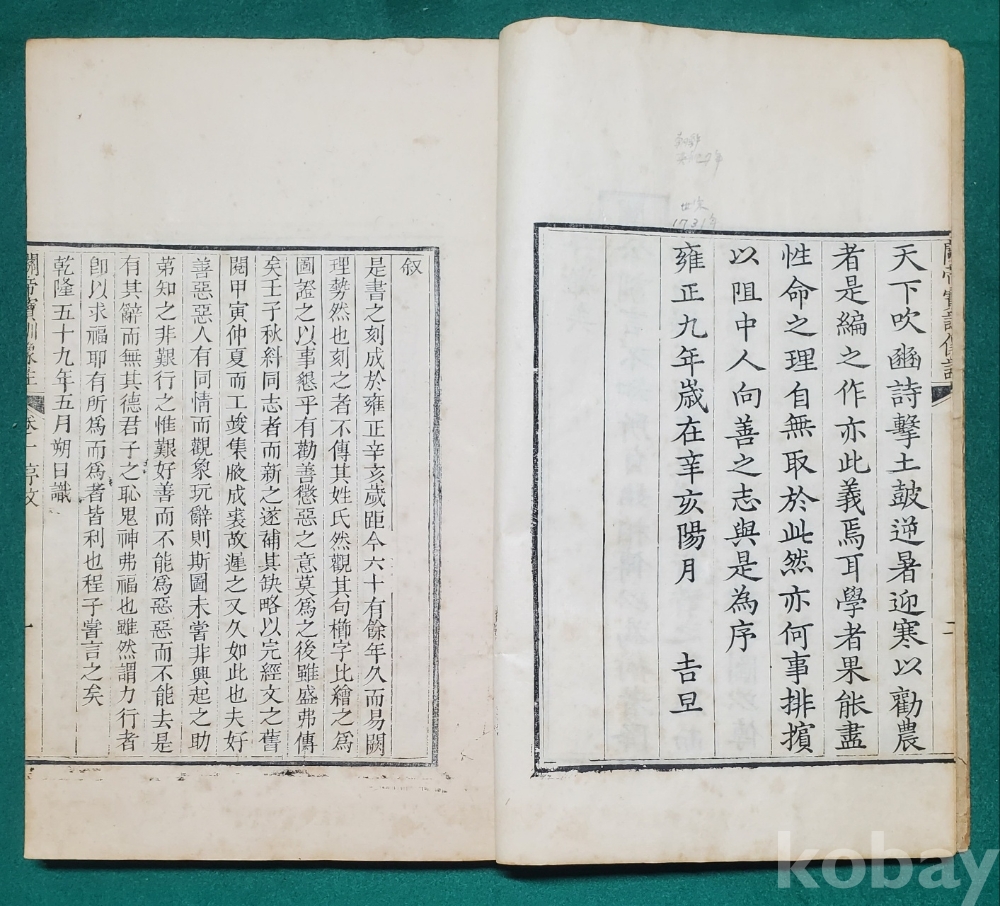 天下吹豳詩擊土鼓逆暑迎寒以勸農
者是編之作亦此義焉耳學者果能盡
性命之理自無取於此然亦何事排擯
以阻中人向善之志與是為序
雍正九年歲在辛亥陽月　吉旦
二
1731年
叙
是書之刻成於雍正辛亥歲距今六十有餘年久而易闕
理勢然也刻之者不傳其姓氏然觀其句櫛字比繪之為
圖證之以事懇乎有勸善懲惡之意莫爲之後雖盛弗傳
矣壬子秋糾同志者而新之遂補其缺略以完經文之舊
閱甲寅仲夏而工竣集腋成裘故遲之又久如此也夫好
善惡惡人有同情而觀象玩辭則斯圖未嘗非興起之助
第知之非艱行之惟艱好善而不能爲惡惡而不能去是
有其辭而無其德君子之恥鬼神弗福也雖然謂力行者
卽以求福耶有所爲而爲者皆利也程子嘗言之矣
乾隆五十九年五月朔日識
關帝寶訓像註 卷一 序文
一
kobay